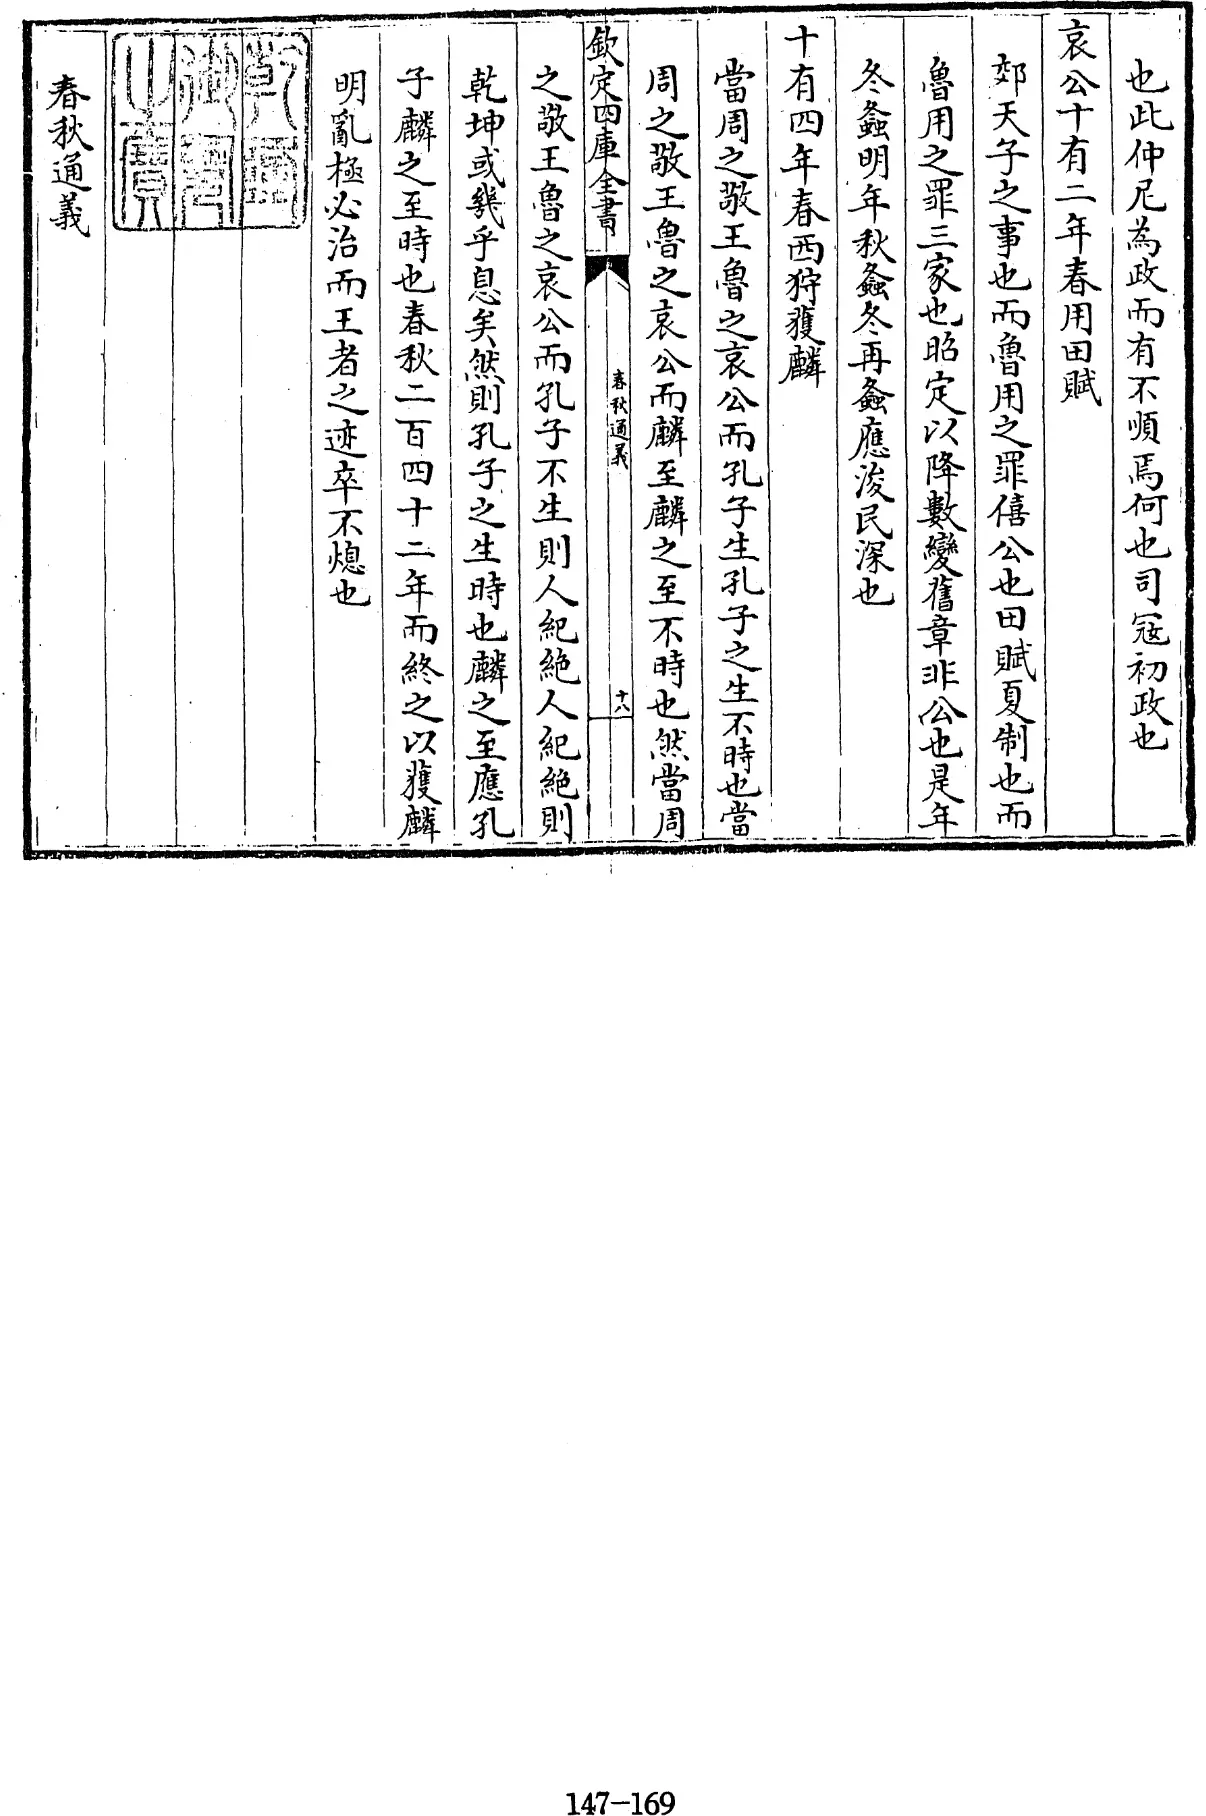 也此仲尼為政而有不順焉何也司宼初政也
哀公十有二年春用田賦
郊天子之事也而魯用之罪僖公也田賦夏制也而
魯用之罪三家也昭定以降數變舊章非公也是年
冬螽明年秋螽冬再螽應浚民深也
十有四年春西狩獲麟
當周之敬王魯之哀公而孔子生孔子之生不時也當
周之敬王魯之哀公而麟至麟之至不時也然當周
欽定四庫全書
春秋通義
十八
之敬王魯之哀公而孔子不生則人紀絶人紀絶則
乾坤或幾乎息矣然則孔子之生時也麟之至應孔
子麟之至時也春秋二百四十二年而終之以獲麟
明亂極必治而王者之迹卒不熄也
乾隆
御覽
之寳
春秋通義
147-169